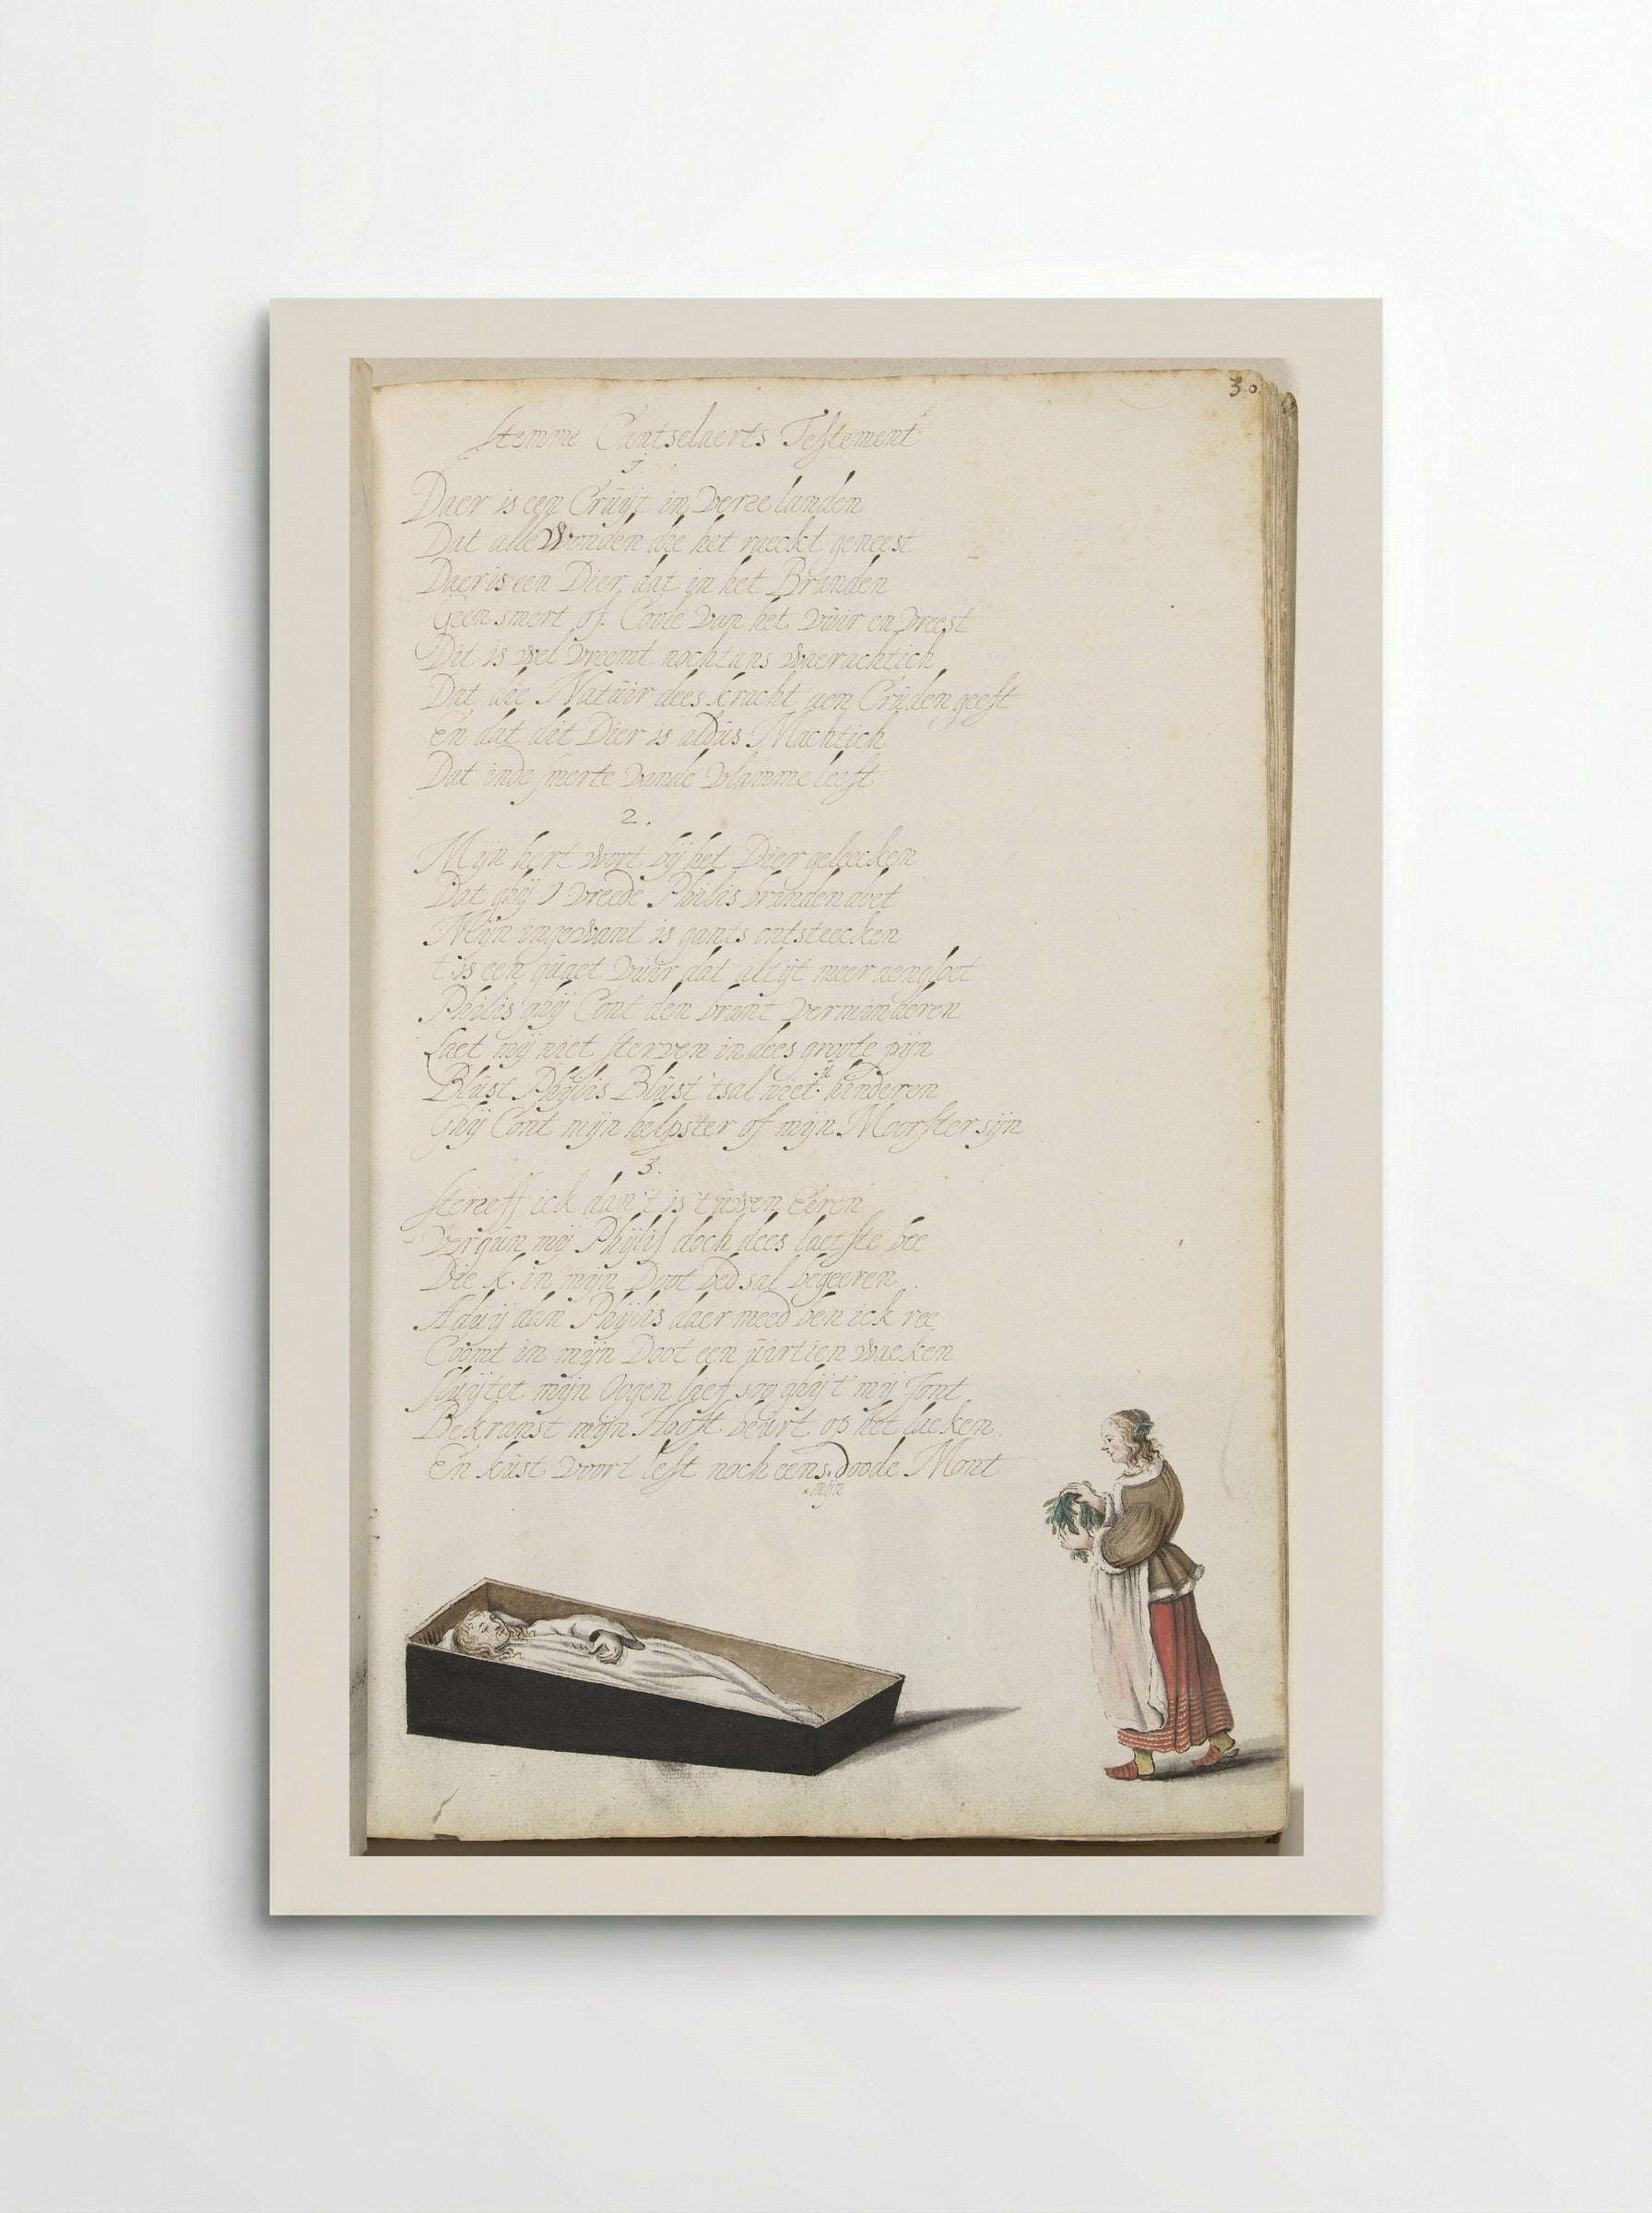 30.
Stemme Cantselaerts Testement
1.
Daer is een Crüÿt in verre landen
Dat alle Wonden die het raeckt geneest
Daer is een Dier dat in het Branden
Geen smert of Coole van het vüir en vreest
Dit is wel vreemt nochtans waerachtich
Dat die Natüir dees kracht aen Crüden geeft
En dat dit Dier is aldüs Machtich
Dat inde smerte vande vlamme leeft
2.
Mijn hert wort bÿ het Dier geleecken
Dat ghÿ O vreede Philis branden doet
Mijn ingewant is gants ontsteecken
t'is een qüaet vüir dat altÿt meer aengloet
Philis ghÿ Cont den brant verminderen
Laet mÿ niet sterven in dees groote pijn
Blüst Phÿlis Blüst tsal niet ü hinderen
Ghÿ Cont mijn helpster of mijn Moorster sijn
3.
Stereff ick dan't is t'üwen Eeren
Vergün mÿ Phÿlis doch dees laetste bee
Die k. in mijn Doot bed sal begeeren
Adüÿ dan Phÿlis daer meed ben ick ree
Coomt in mijn Doot een üirtien waeken
Slüÿtet mijn Oogen lief soo ghÿ t mÿ Jont
Bekranst mijn Hooft beürt op het laeken
En küst voort lest noch eens doode Mont
× mijn